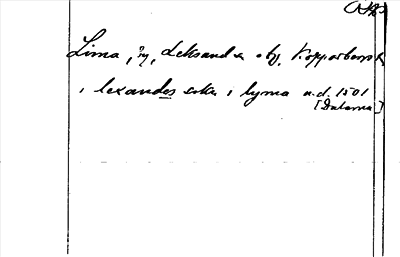 Lima, by, Leksands sn, Kopparbergs l.
i lexandes sokn i lyma a.d. 1501
[Dalarna]